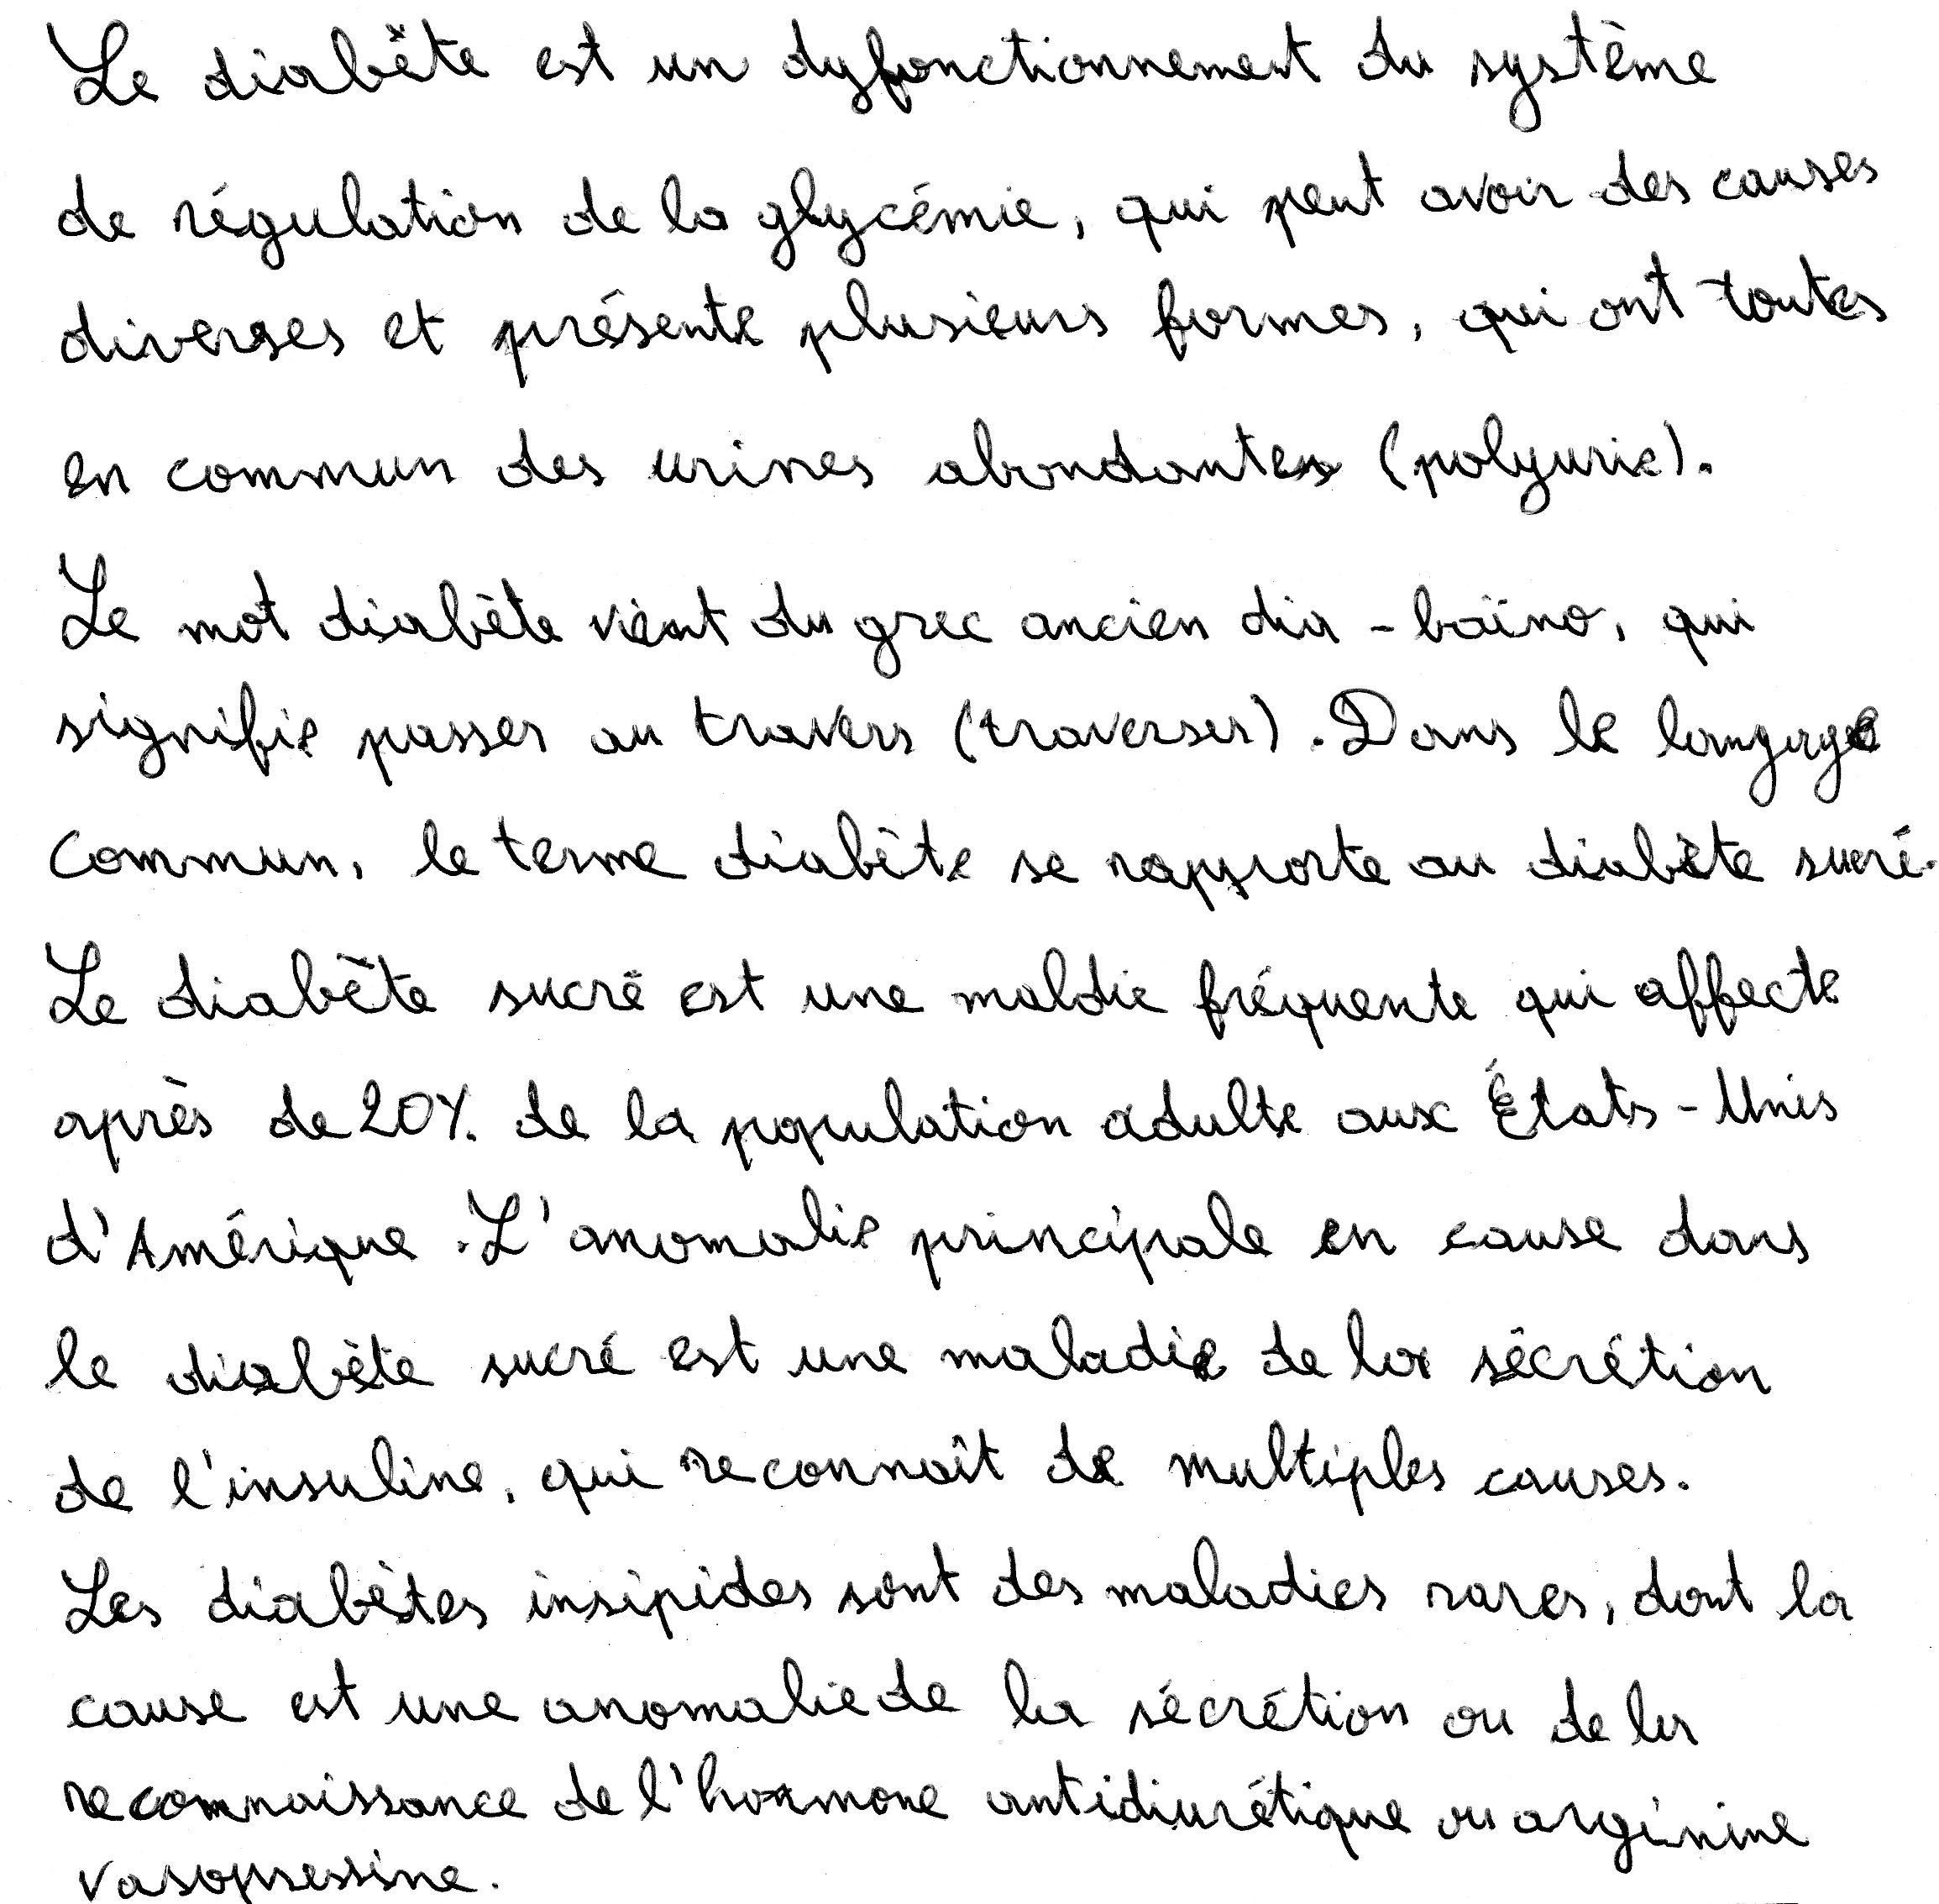 Le diabète est un dysfonctionnement du système
de régulation de la glycémie, qui peut avoir des causes
diverses et présente plusieurs formes, qui ont toutes
en commun des urines abondantes (polyurie).
Le mot diabète vient du grec ancien dia-baïno, qui
signifie passer au travers (traverser). Dans le langage
commun, le terme diabète se rapporte au diabète sucré.
Le diabète sucré est une maldie fréquente qui affecte
après de 20% de la population adulte aux États-Unis
d'Amérique. L'anomalie principale en cause dans
le diabète sucré est une maladie de la sécrétion
de l'insuline, qui reconnaît de multiples causes.
Les diabètes insipides sont des maladies rares, dont la
cause est une anomalie de la sécrétion ou de la
reconnaissance de l'hormone antidiurétique ou arginine
vasopressine.